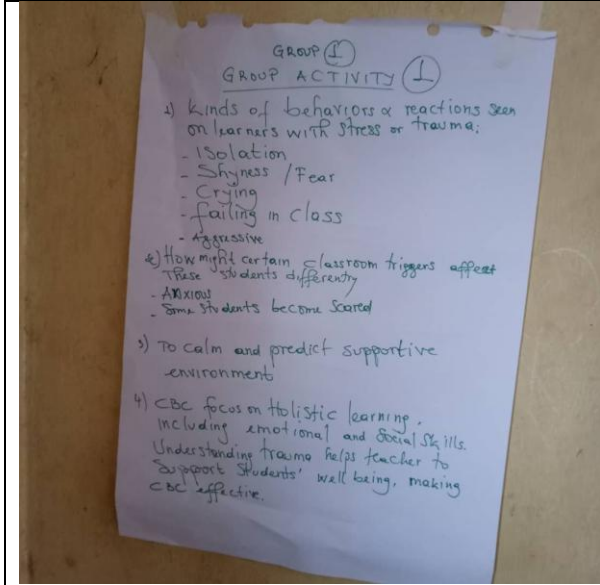 GROUP 1
GROUP ACTIVITY 1
1) Kinds of behaviors & reactions seen
on learners with stress or trauma:
- Isolation
- Shyness / Fear
- Crying
- failing in class
- Aggressive
2) How might certain classroom triggers affect
These students differentry
- Anxious
- Some students become scared
3) To calm and predict supportive
environment
4) CBC focus on Holistic learning,
including emotional and Social Skills.
Understanding trauma helps teacher to
Suppport Students' well being, making
CBC effective.